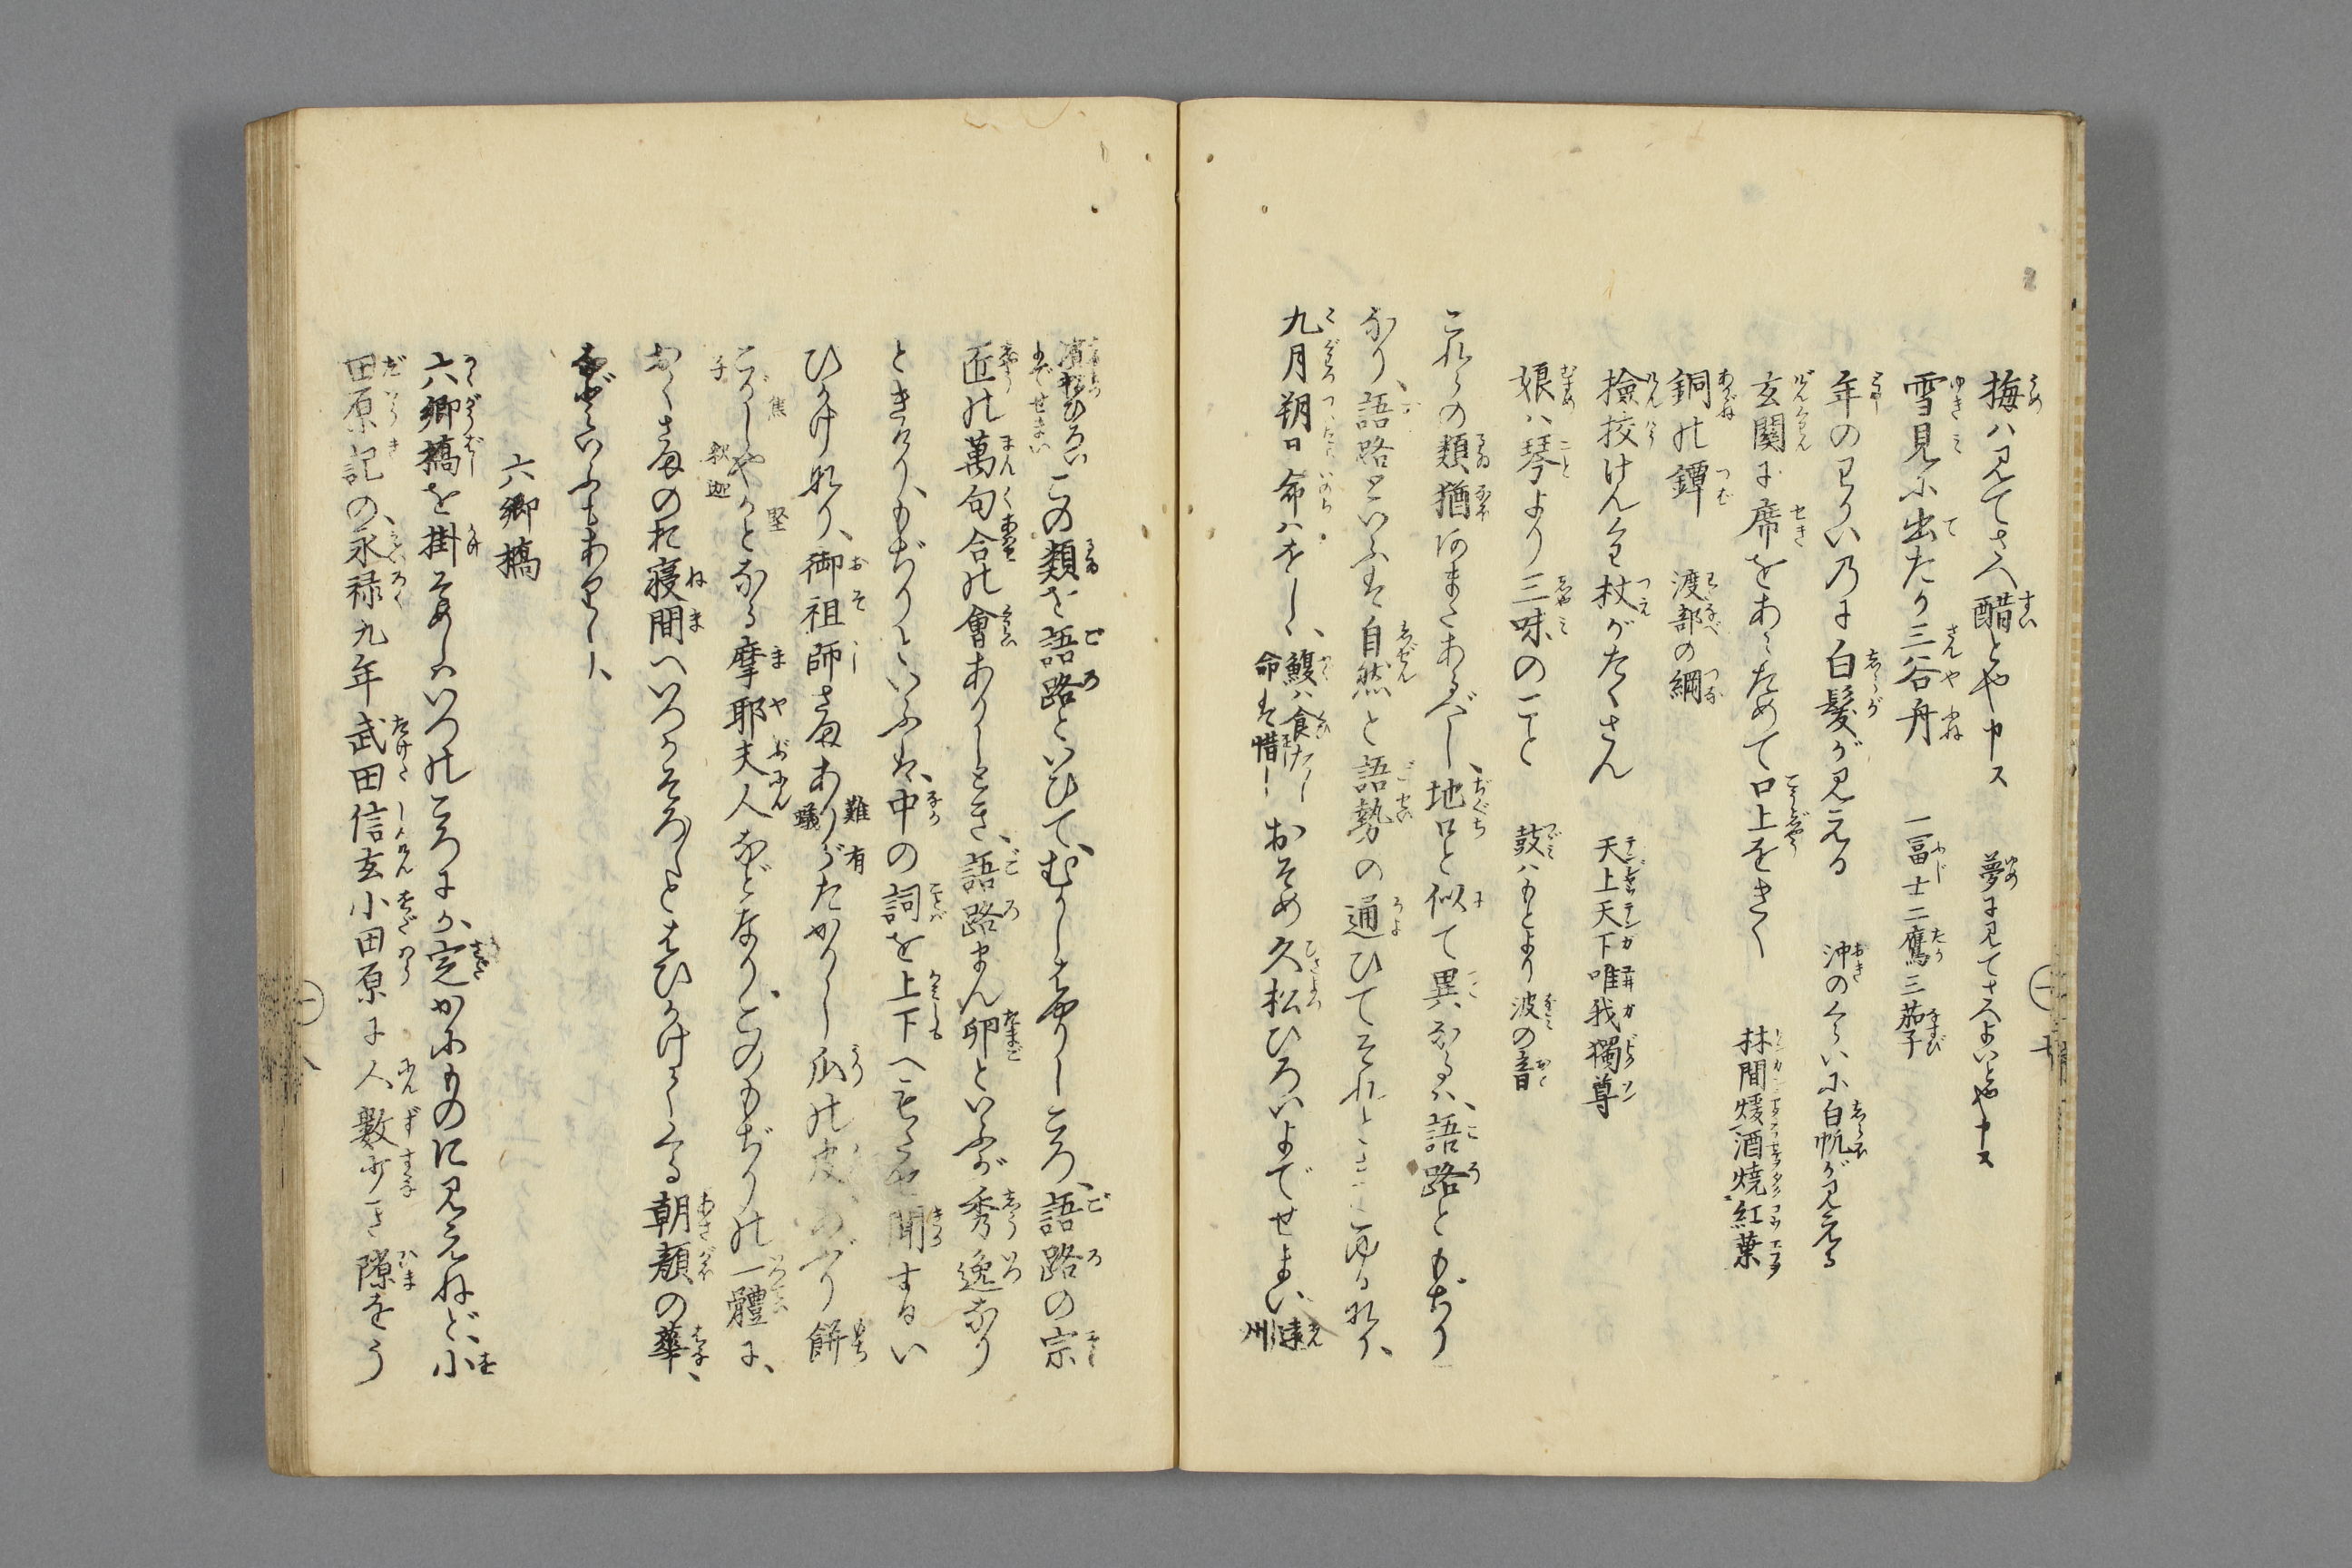 梅ハ見てさへ醋とやカス　夢に見てさへよいとやカス
雪見に出たか三谷舟　一富士二鷹三茄子
年のわかい乃に白髪が見える　沖のくらいに白帆が見える
玄関に席をあらためて口上をきく　林間煖酒焼紅葉
銅の鐔　渡部の綱
撿挍けんくわ杖がたくさん　天上天下唯我獨尊
娘ハ琴より三味のこと　鼓ハもとより波の音
これらの類猶あまたあるべし、地口と似て異なるハ、語路ともぢり
なり、語路といふは自然と語勢の通ひてそれときこゆるなり、
九月朔日命ハをし、鰒ハ食たし命は惜し おそめ久松ひろいよでせまい、遠州
濱松ひろい この類を語路といひて、むかしはやりしころ、語路の宗
もでせまい
匠の萬句合の會ありしとき、語路まん卯といふが秀逸なり
ときけり、もぢりといふは、中の詞を上下へもたせ聞するい
ひかけなり、御祖師さまありがたかりし瓜の皮、あぶり餅
難有
蟻
こがしやかとなる摩耶夫人などなり、このもぢりの一體に、
焦
堅
子
釈迦
おくさまのお寝間へいろかそろ〳〵とはひかけてくる朝顔の華、
などいふもありし、
六郷橋
六郷橋を掛そめしハいつのころにか、定かにものに見えねど、小
田原記の、永禄九年武田信玄小田原に人數少き隙をう